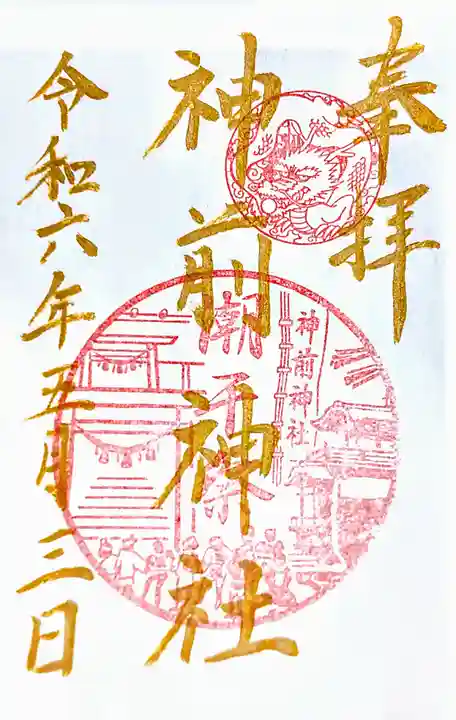 奉拝
神前神社
神前神社
潮干祭
令和六年五月三日